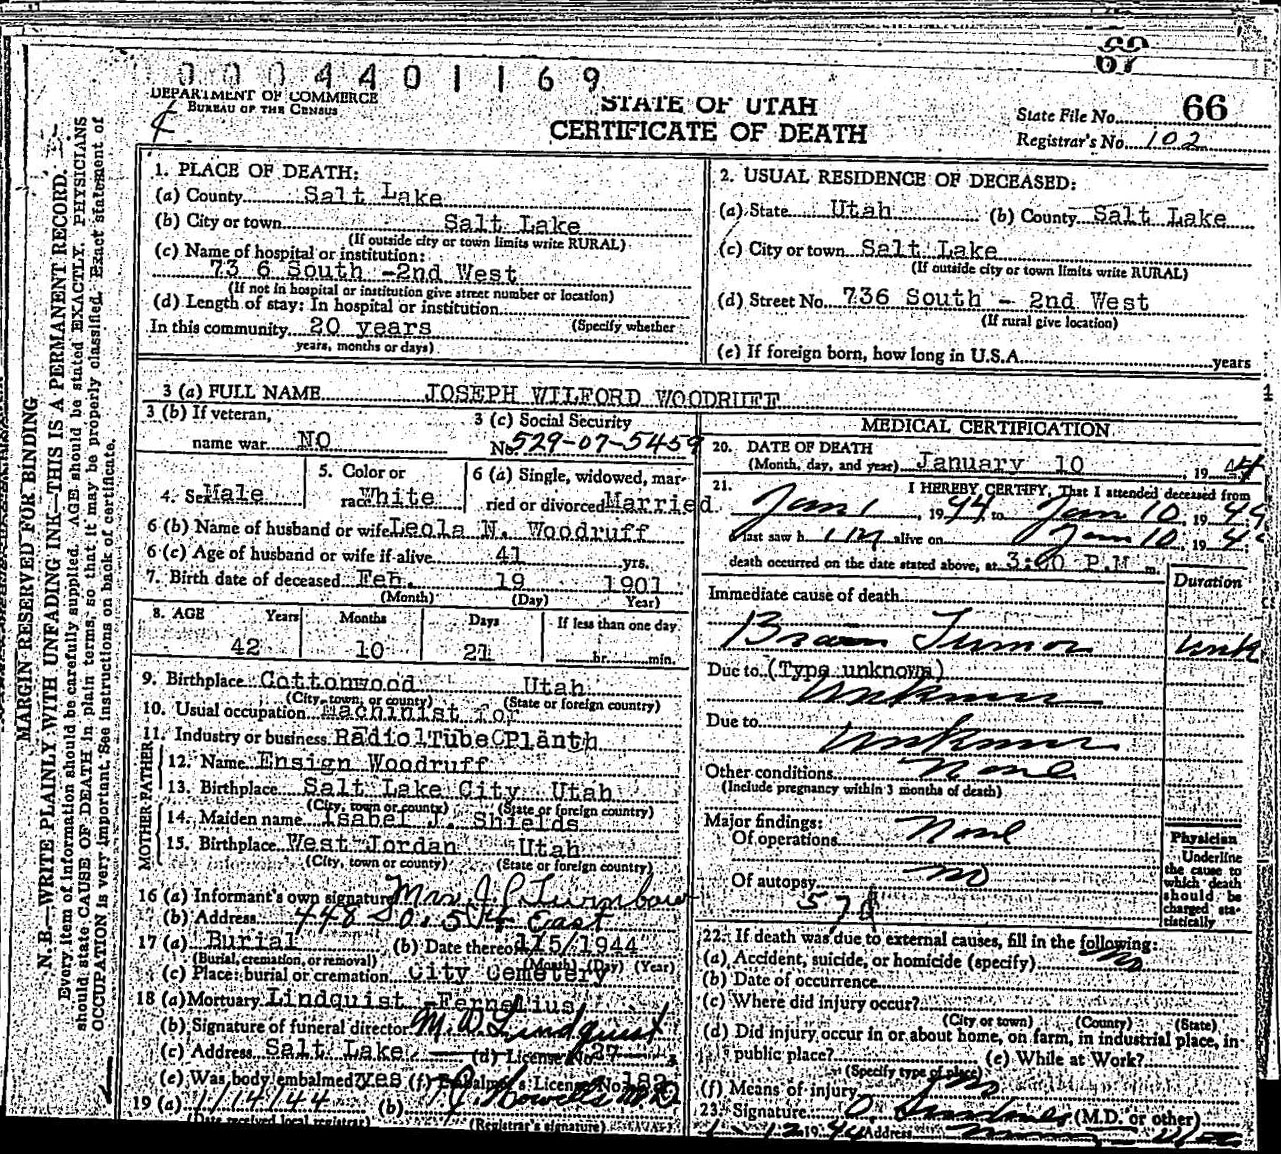 67
0004401169
DEPARTMENT OF COMMERCE
BUREAU OF THE CENSUS
STATE OF UTAH
CERTIFICATE OF DEATH
State File No. 66
Registrar's No. 102
MARGIN RESERVED FOR BINDING
N. B.—WRITE PLAINLY WITH UNFADING INK—THIS IS A PERMANENT RECORD.
Every item of information should be carefully supplied. AGE should be stated EXACTLY. PHYSICIANS
should state CAUSE OF DEATH in plain terms, so that it may be properly classified. Exact statement of
OCCUPATION is very important. See instructions on back of certificate.
1. PLACE OF DEATH:
(a) County Salt Lake
(b) City or town Salt Lake
(If outside city or town limits write RURAL)
(c) Name of hospital or institution:
73 6 South -2nd West
(If not in hospital or institution give street number or location)
(d) Length of stay: In hospital or institution
In this community 20 years (Specify whether
years, months or days)
2. USUAL RESIDENCE OF DECEASED:
(a) State Utah (b) County Salt Lake
(c) City or town Salt Lake
(If outside city or town limits write RURAL)
(d) Street No. 736 South - 2nd West
(If rural give location)
(e) If foreign born, how long in U.S.A. years
3 (a) FULL NAME JOSEPH WILFORD WOODRUFF
3 (b) If veteran,
name war NO
3 (c) Social Security
No. 529-07-5459
4. Sex Male
5. Color or
race White
6 (a) Single, widowed, mar-
ried or divorced Married
6 (b) Name of husband or wife Leola N. Woodruff
6 (c) Age of husband or wife if alive 41 yrs.
7. Birth date of deceased Feb. 19 1901
(Month) (Day) Year)
8. AGE Years Months Days If less than one day
42 10 21 hr. min.
9. Birthplace Cottonwood Utah
(City, town, or county) (State or foreign country)
10. Usual occupation Machinist for
11. Industry or business Radio Tube Plant
FATHER
12. Name Ensign Woodruff
13. Birthplace Salt Lake City Utah
(City, town or county) (State or foreign country)
MOTHER
14. Maiden name Isabel J. Shields
15. Birthplace West Jordan Utah
(City, town or county) (State or foreign country)
16 (a) Informant's own signature Mrs. J. P. Turnbow
(b) Address 448 So. 5th East
17 (a) Burial (b) Date thereof 1/15/1944
(Burial, cremation, or removal) (Month) (Day) (Year)
(c) Place: burial or cremation City Cemetery
18 (a) Mortuary Lindquist -Fernelius
(b) Signature of funeral director M. D. Lindquist
(c) Address Salt Lake (d) License No. 27
(e) Was body embalmed? yes (f) Embalmer's License No.
19 (a) 1/14/44 (b) Howells MD
(Date received local registrar) (Registrar's signature)
MEDICAL CERTIFICATION
20. DATE OF DEATH
(Month, day, and year) January 10, 1944
21. I HEREBY CERTIFY, That I attended deceased from
Jan 1, 1944, to Jan 10, 1944
last saw him alive on Jan 10, 194
death occurred on the date stated above, at 3:00 P.M m.
Duration
Immediate cause of death
Brain Tumor unk
Due to (Type unknown)
unknown
Due to
unknown
Other conditions None
(Include pregnancy within 3 months of death)
Major findings:
Of operations None
Of autopsy no
57d
Physician
Underline
the cause to
which death
should be
charged sta-
tistically
22. If death was due to external causes, fill in the following:
(a) Accident, suicide, or homicide (specify) no
(b) Date of occurrence
(c) Where did injury occur?
(City or town) (County) (State)
(d) Did injury occur in or about home, on farm, in industrial place, in
public place? (e) While at Work?
(Specify type of place)
(f) Means of injury no
23. Signature (M.D. or other)
1-12 1944 Address